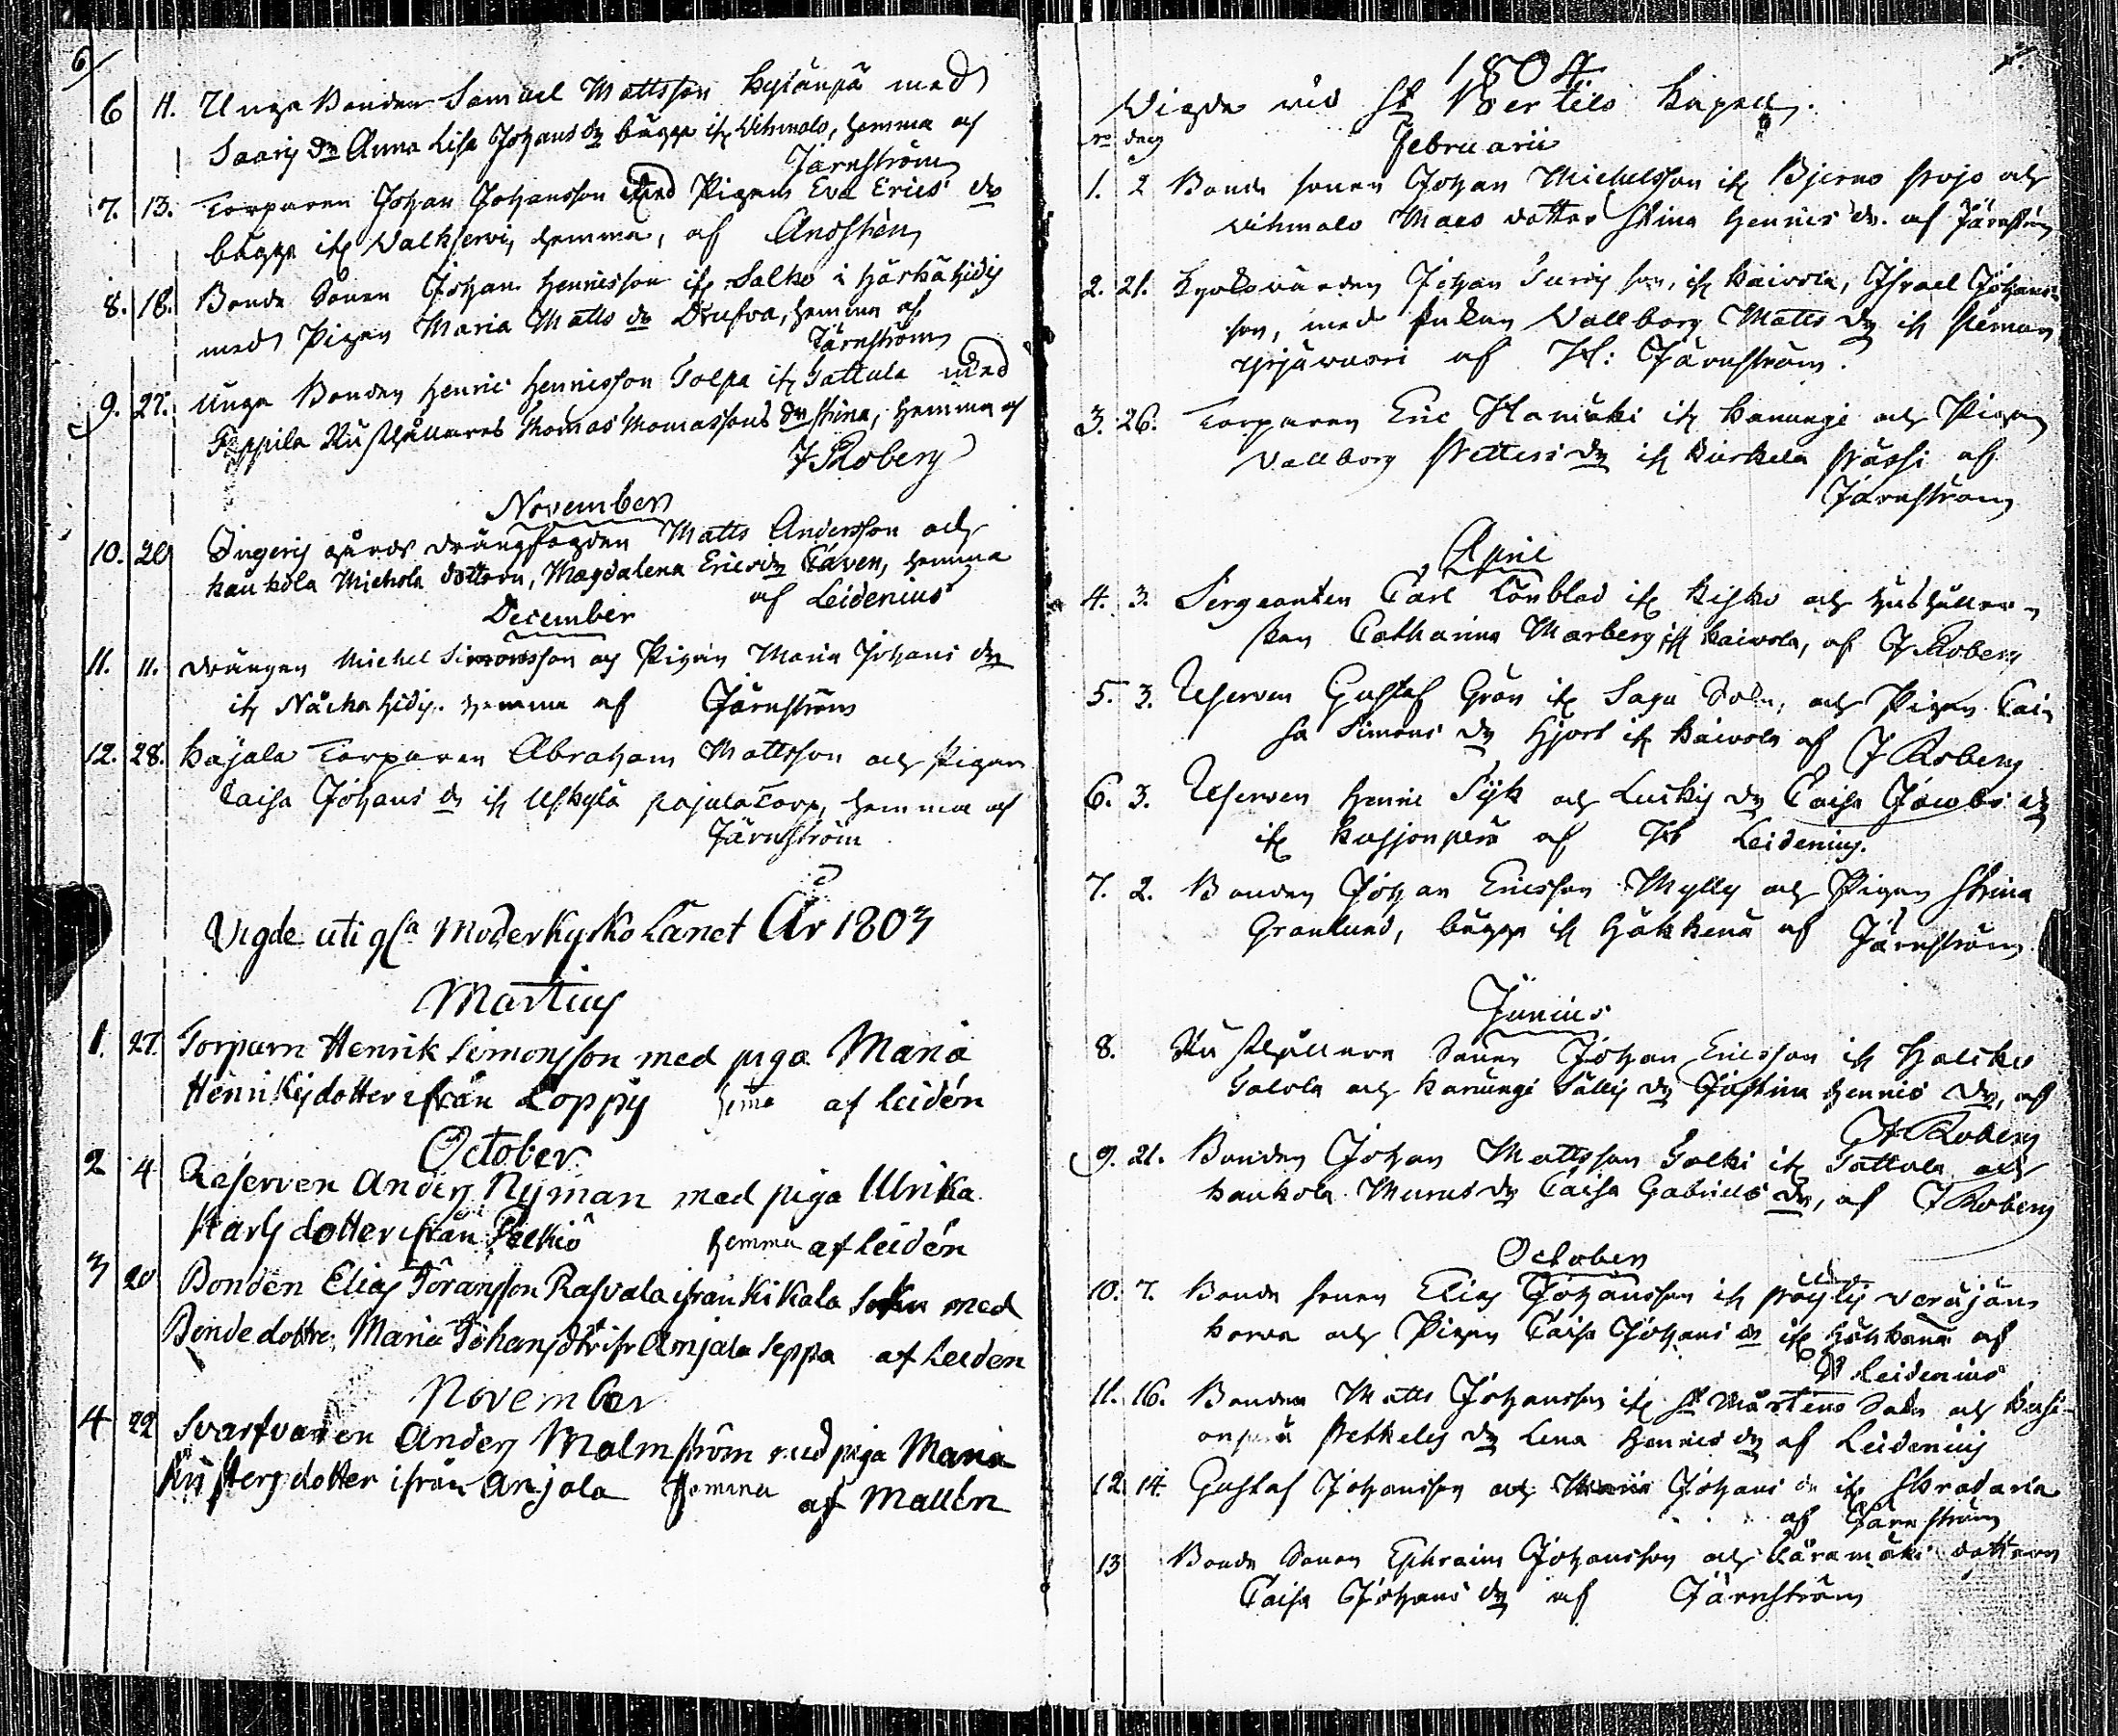 6
6 11. Unga Bonden Samuel Mattsson Kylänpä med
Saaris dr Anna Lisa Johans dr bägge ifr Wihmalo, hemma af
Järnström
7. 13. Torparen Johan Johansson med Pigan Eva Erics dr
bägge ifr Valkjervi, hemma, af
8. 18. Bonde Sonen Johan Henricsson ifr Salko i Härkähidis
med Pigan Maria Matts dr Drufva, hemma af
Järnström
9. 27. Unga Bonden Henric Henricsson Tolpa ifr Tattula med
Teppila Rusthållares Thomas Thomassons dr Stina, hemma af
J Roberg
November
10. 20 Ingeris gårds Drängfogden Matts Andersson och
Kaukola Michola dottern, Magdalena Ericsdr Caven, hemma
af Leidenius
December
11. 11. Drängen Michel Simonsson og Pigan Maria Johans dr
ifr Närkahidis hemma af Järnström
12. 28. Kajala Torparen Abraham Mattsson och Pigan
Caisa Johans dr ifr Uskylä pajula Torp, hemma af
Järnström
Vigde uti gla Moderkyrko Länet År 1803
Martius
1. 27. Torparn Henrik Simonsson med piga Maria
Henriksdotter ifrån Loppis hema af Leidén
October
2 4 Reserven Anders Nyman med piga Ulrika
Karls dotter ifrån hemma af Leidén
3 20 Bonden Elias Göransson Rasvala ifrån Kikala Sokn med
Bonde dottr: Maria Johansdtr ifr Anjala Seppa af Leiden
November
4 22 Svarfvaren Anders Malmström med piga Maria
dotter ifrån Anjala hemma af Mallén
1804
Vigde vid St Bertils Kapell.
no dag Februarii
1. 2 Bonde sonen Johan Michelsson ifr Bjerno och
Wihmalo Maes dotter Stina Henrics dr. af Järnström
2. 21. Kyrkovärden Johan ifr Kaivola, Israel Johans-
son, med Enkan Vallborg Matts dr ifr
Yrjänvuori af H: Järnström.
3. 26. Torparen Eric Hamäki ifr Kanungi och Pigan
Vallborg Petters dr ifr Kurkela af
Järnström
April
4. 3. Sergeanten Carl Lönblad ifr Kisko och Hushåller-
skan Catharina Marberg ifr Kaivola, af J Roberg
5. 3. Reserven Gustaf Grön ifr Sagu Sokn, och Pigan Cai-
sa Simons dr Hjort ifr Kaivola af J Roberg
6. 3. Reserven Henric Syk och Luckis dr Caisa Jacobs dr
ifr Kusjonperä af Hr Leidenius.
7. 2. Bonden Johan Ericsson Mylly och Pigan Stina
Granlund, bägge ifr Häkkenä af Järnström
Junius
8. Rusthållare Sonen Johan Ericsson ifr Halicko
Talola och Kanungi Sällis dr Justina Henrics dr, af
J Roberg
9. 21. Bonden Johan Mattsson Talki ifr Tattula och
Kaukola Murus dr Caisa Gabriels dr, af J Roberg
October
10. 7. Bonde sonen Elias Johansson ifr Veräjän
korva och Pigan Caisa Johans dr ifr Häkkänä af
Leidenius
11. 16. Bonden Matts Johansson ifr St Mårtens Sokn och Kusi-
onperä Pettelis dr Lena Henrics dr af Leidenius
12 14. Gustaf Johansson och Maria Johans dr ifr
af Järnström
13 Bonde Sonen Ephraim Johansson och dottern
Caisa Johans dr af Järnström